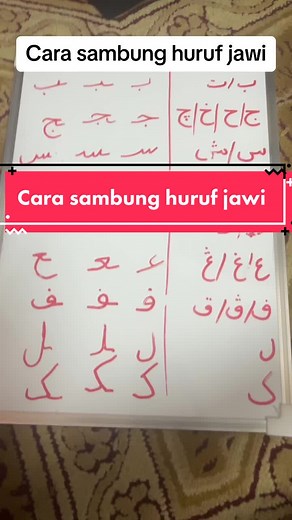 Cara sambung huruf jawi
ب/ت بـ ـبـ ـب
ج/ح/خ/چ جـ ـجـ ـج
س/ش سـ ـسـ ـس
Cara sambung huruf jawi
ع/غ/ڠ عـ ـعـ ـع
ف/ڤ/ق فـ ـفـ ـف
ل لـ ـلـ ـل
ک کـ ـکـ ـک